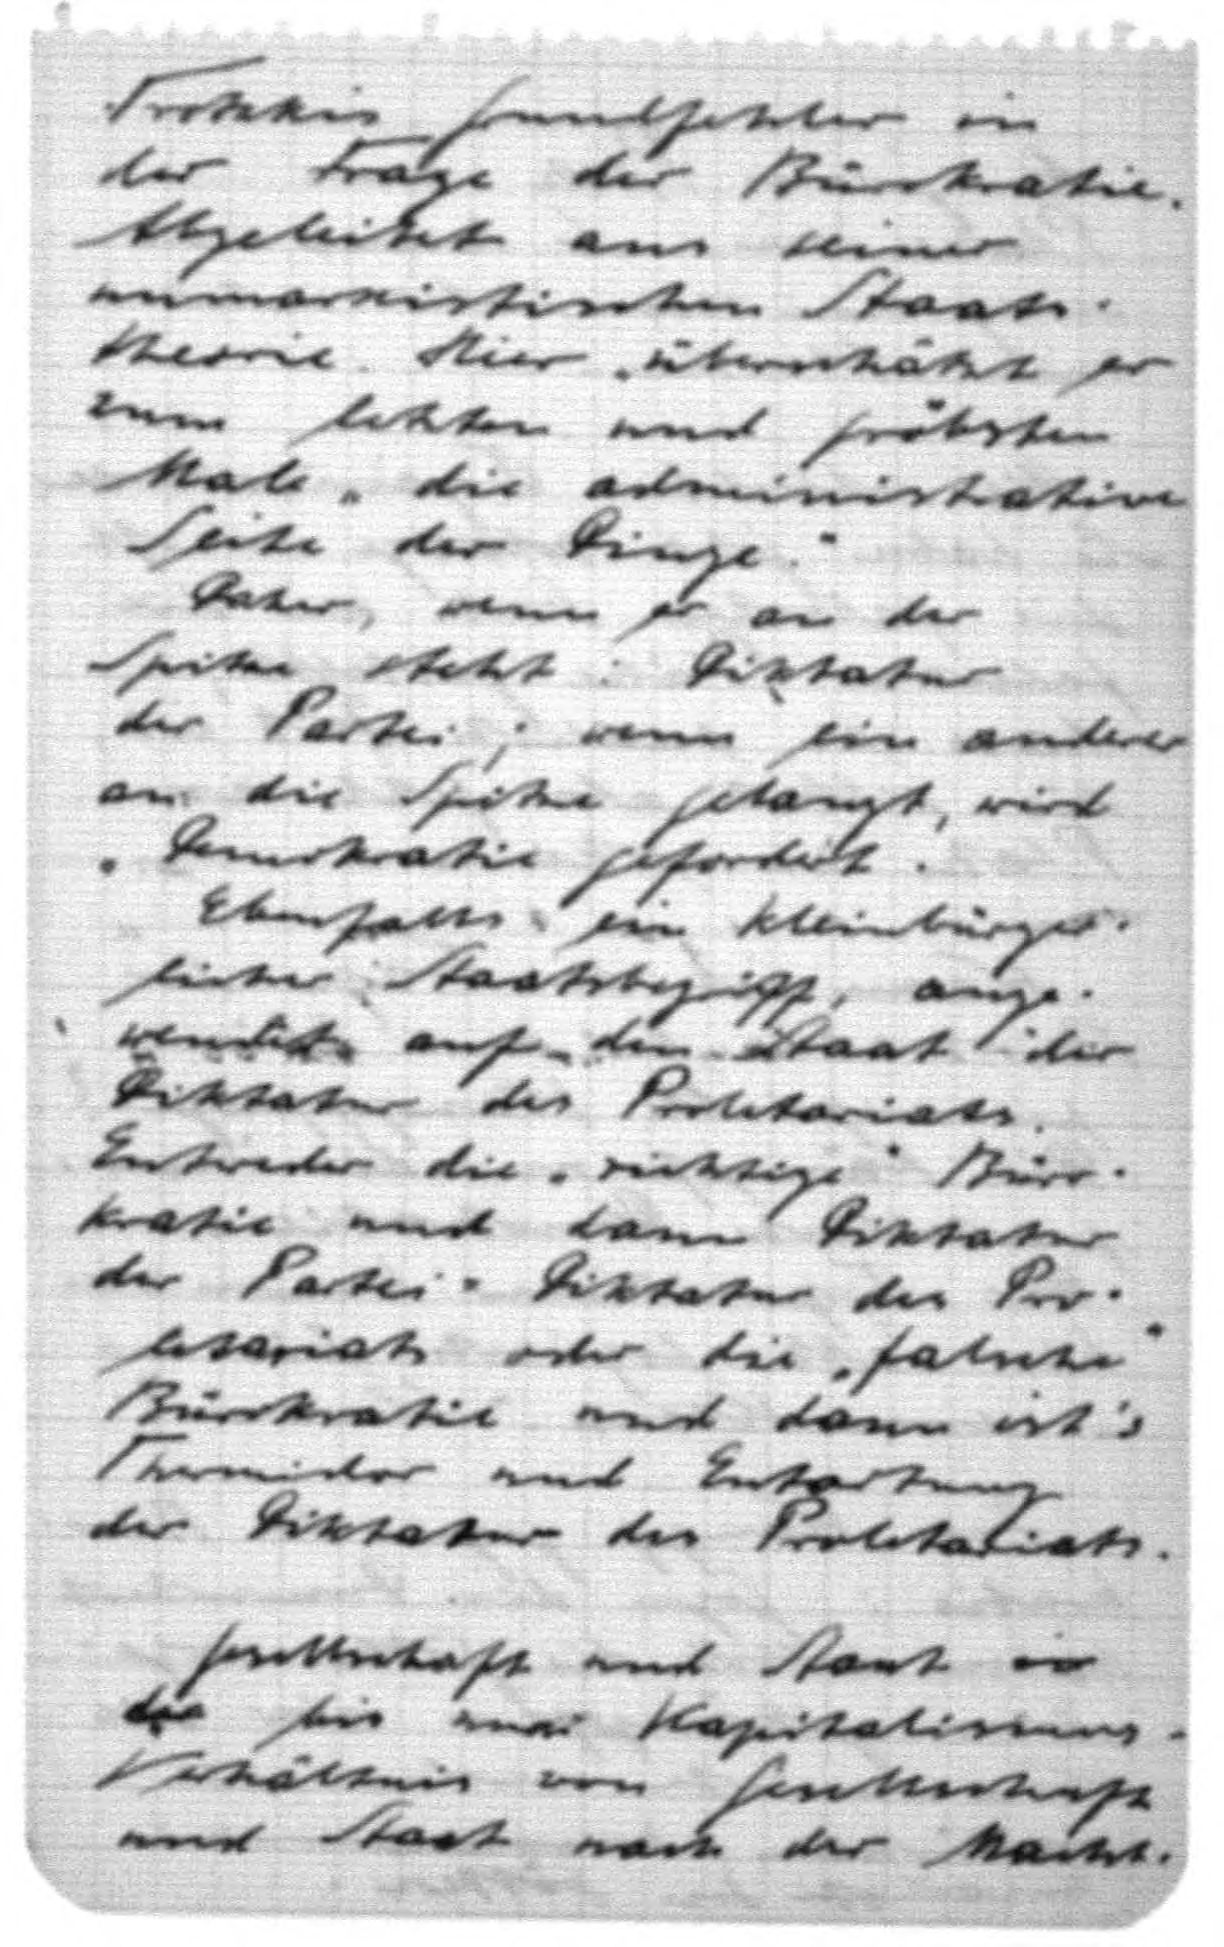 Trotzkis Grundfehler in
der Frage der Bürokratie.
Abgeleitet aus seiner
unmarxistischen Staats-
theorie. Hier „überschätzt er
zum letzten und gröbsten
Male „die administrative
Seite der Dinge."
Daher, wenn er an der
Spitze steht: Diktatur
der Partei; wenn ein anderer
an die Spitze gelangt, wird
„Demokratie gefordert.
Ebenfalls ein kleinbürger-
licher Staatsbegriff, ange-
wendet auf den Staat der
Diktatur des Proletariats.
Entweder die „richtige" Büro-
kratie und dann Diktatur
der Partei = Diktatur des Pro-
letariats oder die „falsche"
Bürokratie und dann ist's
Thermidor und Entartung
der Diktatur des Proletariats.
Gesellschaft und Staat in
Kapitalismus.
Verhältnis von Gesellschaft
und Staat nach der Macht-